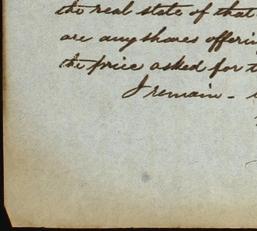 the real state of that
are any shares offering
the price asked for t
I remain -